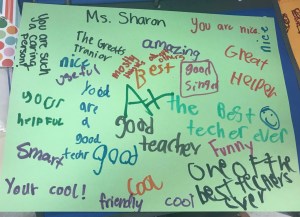 Ms. Sharon
You are such
a caring
person!
The Greats
tranior
amazing
You are nice
nice
nice
useful
mostly
thinks about
others
Best
good
Great
Helper
your
helpful
good
are
a
good
techr
A+
the Best
techer ever
good
teacher
Funny
Smart
good
One of the
best teachers
ever
Your cool!
friendly
cool
cool